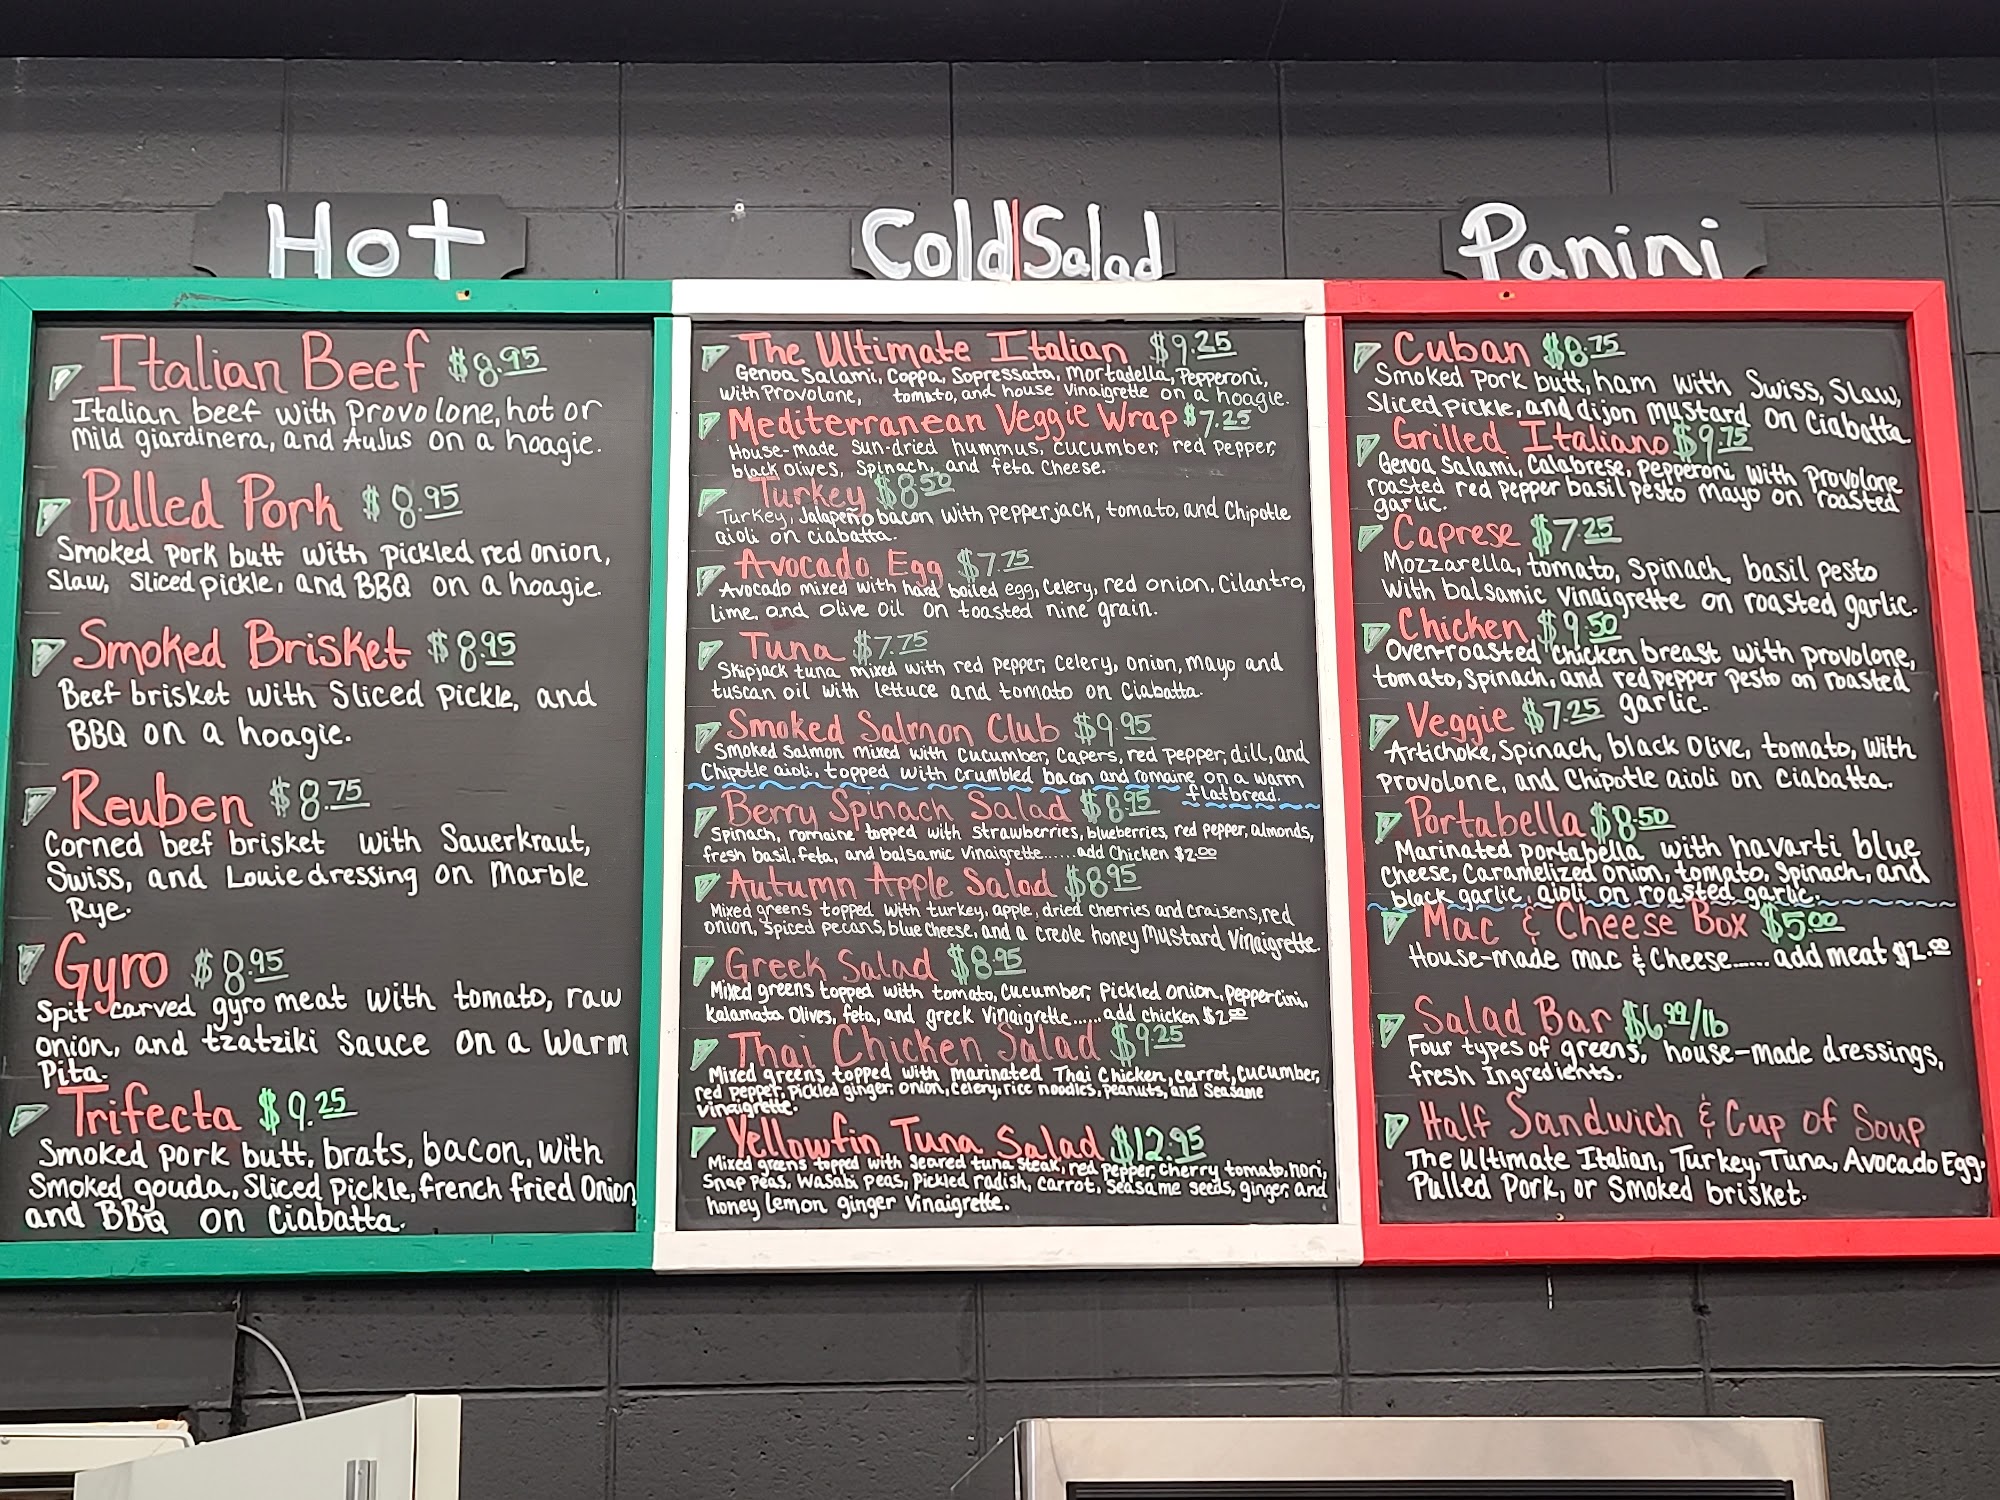 Hot
Italian Beef $8.95
Italian beef with Provolone, hot or
Mild giardinera, and AuJus on a hoagie.
Pulled Pork $8.95
Smoked pork butt with pickled red onion,
Slaw, Sliced pickle, and BBQ on a hoagie.
Smoked Brisket $8.95
Beef brisket with Sliced Pickle, and
BBQ on a hoagie.
Reuben $8.75
Corned beef brisket with Sauerkraut,
Swiss, and Louie dressing on Marble
Rye.
Gyro $8.95
Spit carved gyro meat with tomato, raw
onion, and tzatziki Sauce on a Warm
Pita.
Trifecta $9.25
Smoked pork butt, brats, bacon, with
Smoked gouda, Sliced Pickle, french fried Onion,
and BBQ on Ciabatta.
Cold|Salad
The Ultimate Italian $9.25
Genoa Salami, Coppa, Sopressata, Mortadella, Pepperoni,
with Provolone, tomato, and house Vinaigrette on a hoagie.
Mediterranean Veggie Wrap $7.25
House-made Sun-dried hummus, cucumber, red Pepper,
black olives, Spinach, and feta Cheese.
Turkey $8.50
Turkey, Jalapeño bacon with pepperjack, tomato, and Chipotle
aioli on ciabatta.
Avocado Egg $7.75
Avocado mixed with hard boiled egg, Celery, red onion, Cilantro,
Lime, and Olive oil on toasted nine grain.
Tuna $7.75
Skipjack tuna mixed with red pepper, Celery, onion, mayo and
tuscan oil with lettuce and tomato on Ciabatta.
Smoked Salmon Club $9.95
Smoked Salmon mixed with Cucumber, Capers, red pepper, dill, and
Chipotle aioli, topped with crumbled bacon and romaine on a warm
flatbread.
Berry Spinach Salad $8.95
Spinach, romaine topped with Strawberries, blueberries, red pepper, almonds,
fresh basil, feta, and balsamic Vinaigrette......add Chicken $2.00
Autumn Apple Salad $8.95
Mixed greens topped with turkey, apple, dried cherries and craisens, red
onion, spiced pecans, blue cheese, and a creole honey Mustard Vinaigrette.
Greek Salad $8.95
Mixed greens topped with tomato, Cucumber, Pickled Onion, Peppercini,
Kalamata Olives, feta, and greek Vinaigrette......add chicken $2.00
Thai Chicken Salad $9.25
Mixed greens topped with marinated Thai Chicken, carrot, cucumber,
red pepper, pickled ginger, onion, celery, rice noodles, peanuts, and Seasame
Vinaigrette.
Yellowfin Tuna Salad $12.95
Mixed greens topped with Seared tuna Steak, red pepper, Cherry tomato, nori,
Snap peas, Wasabi peas, Pickled radish, Carrot, Seasame Seeds, ginger, and
honey lemon ginger Vinaigrette.
Panini
Cuban $8.75
Smoked Pork butt, ham with Swiss, Slaw,
Sliced pickle, and dijon mustard on Ciabatta.
Grilled Italiano $9.75
Genoa Salami, Calabrese, Pepperoni with Provolone
roasted red pepper basil pesto mayo on roasted
garlic.
Caprese $7.25
Mozzarella, tomato, Spinach, basil pesto
with balsamic Vinaigrette on roasted garlic.
Chicken $9.50
Over-roasted chicken breast with provolone,
tomato, Spinach, and red pepper Pesto on roasted
garlic.
Veggie $7.25
Artichoke, Spinach, black Olive, tomato, with
Provolone, and Chipotle aioli on Ciabatta.
Portabella $8.50
Marinated portabella with havarti blue
Cheese, Caramelized onion, tomato, Spinach, and
black garlic aioli on roasted garlic.
Mac & Cheese Box $5.00
House-made mac & Cheese...... add meat $2.00
Salad Bar $6.99/lb
Four types of greens, house-made dressings,
fresh Ingredients.
Half Sandwich & Cup of Soup
The Ultimate Italian, Turkey, Tuna, Avocado Egg,
Pulled Pork, or Smoked brisket.